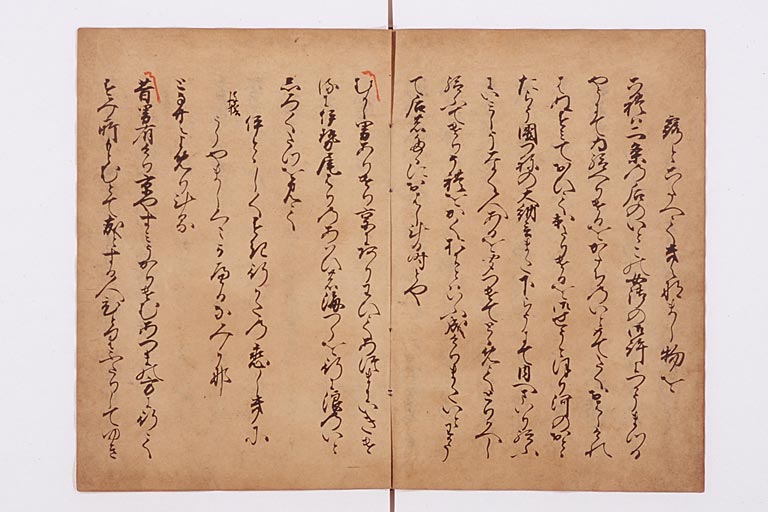 露とこたへてきえなまし物を
これは二条の后のいとこの女御の御許につかうまつる
やうにてゐ給へりけるをかたちのいとめてたくおはしけれ
はぬすみておひていてたりけるを御せうとほり河のおとゝ
たらう國つねの大納言また下らうにて内へまいり給ふ
にいみしうなく人あるをきゝつけてとゝめてとりかへし
給ふてけりそれをかくおにとはいふ成けりまたいとわかう
て后のたゝにおはしける時とや
むかし男ありけり京にありわひてあつまにいきけ
るに伊勢尾はりのあはひの海つらを行に浪のいと
しろくたつを見て
伊とゝしくすき行かたの恋しきに
後撰
うらやましくもかへるなみかな
となむよめりける
昔男有けり京やすみうかりけむあつまの方に行て
すみ所もとむとて友とする人ひとりふたりしてゆき